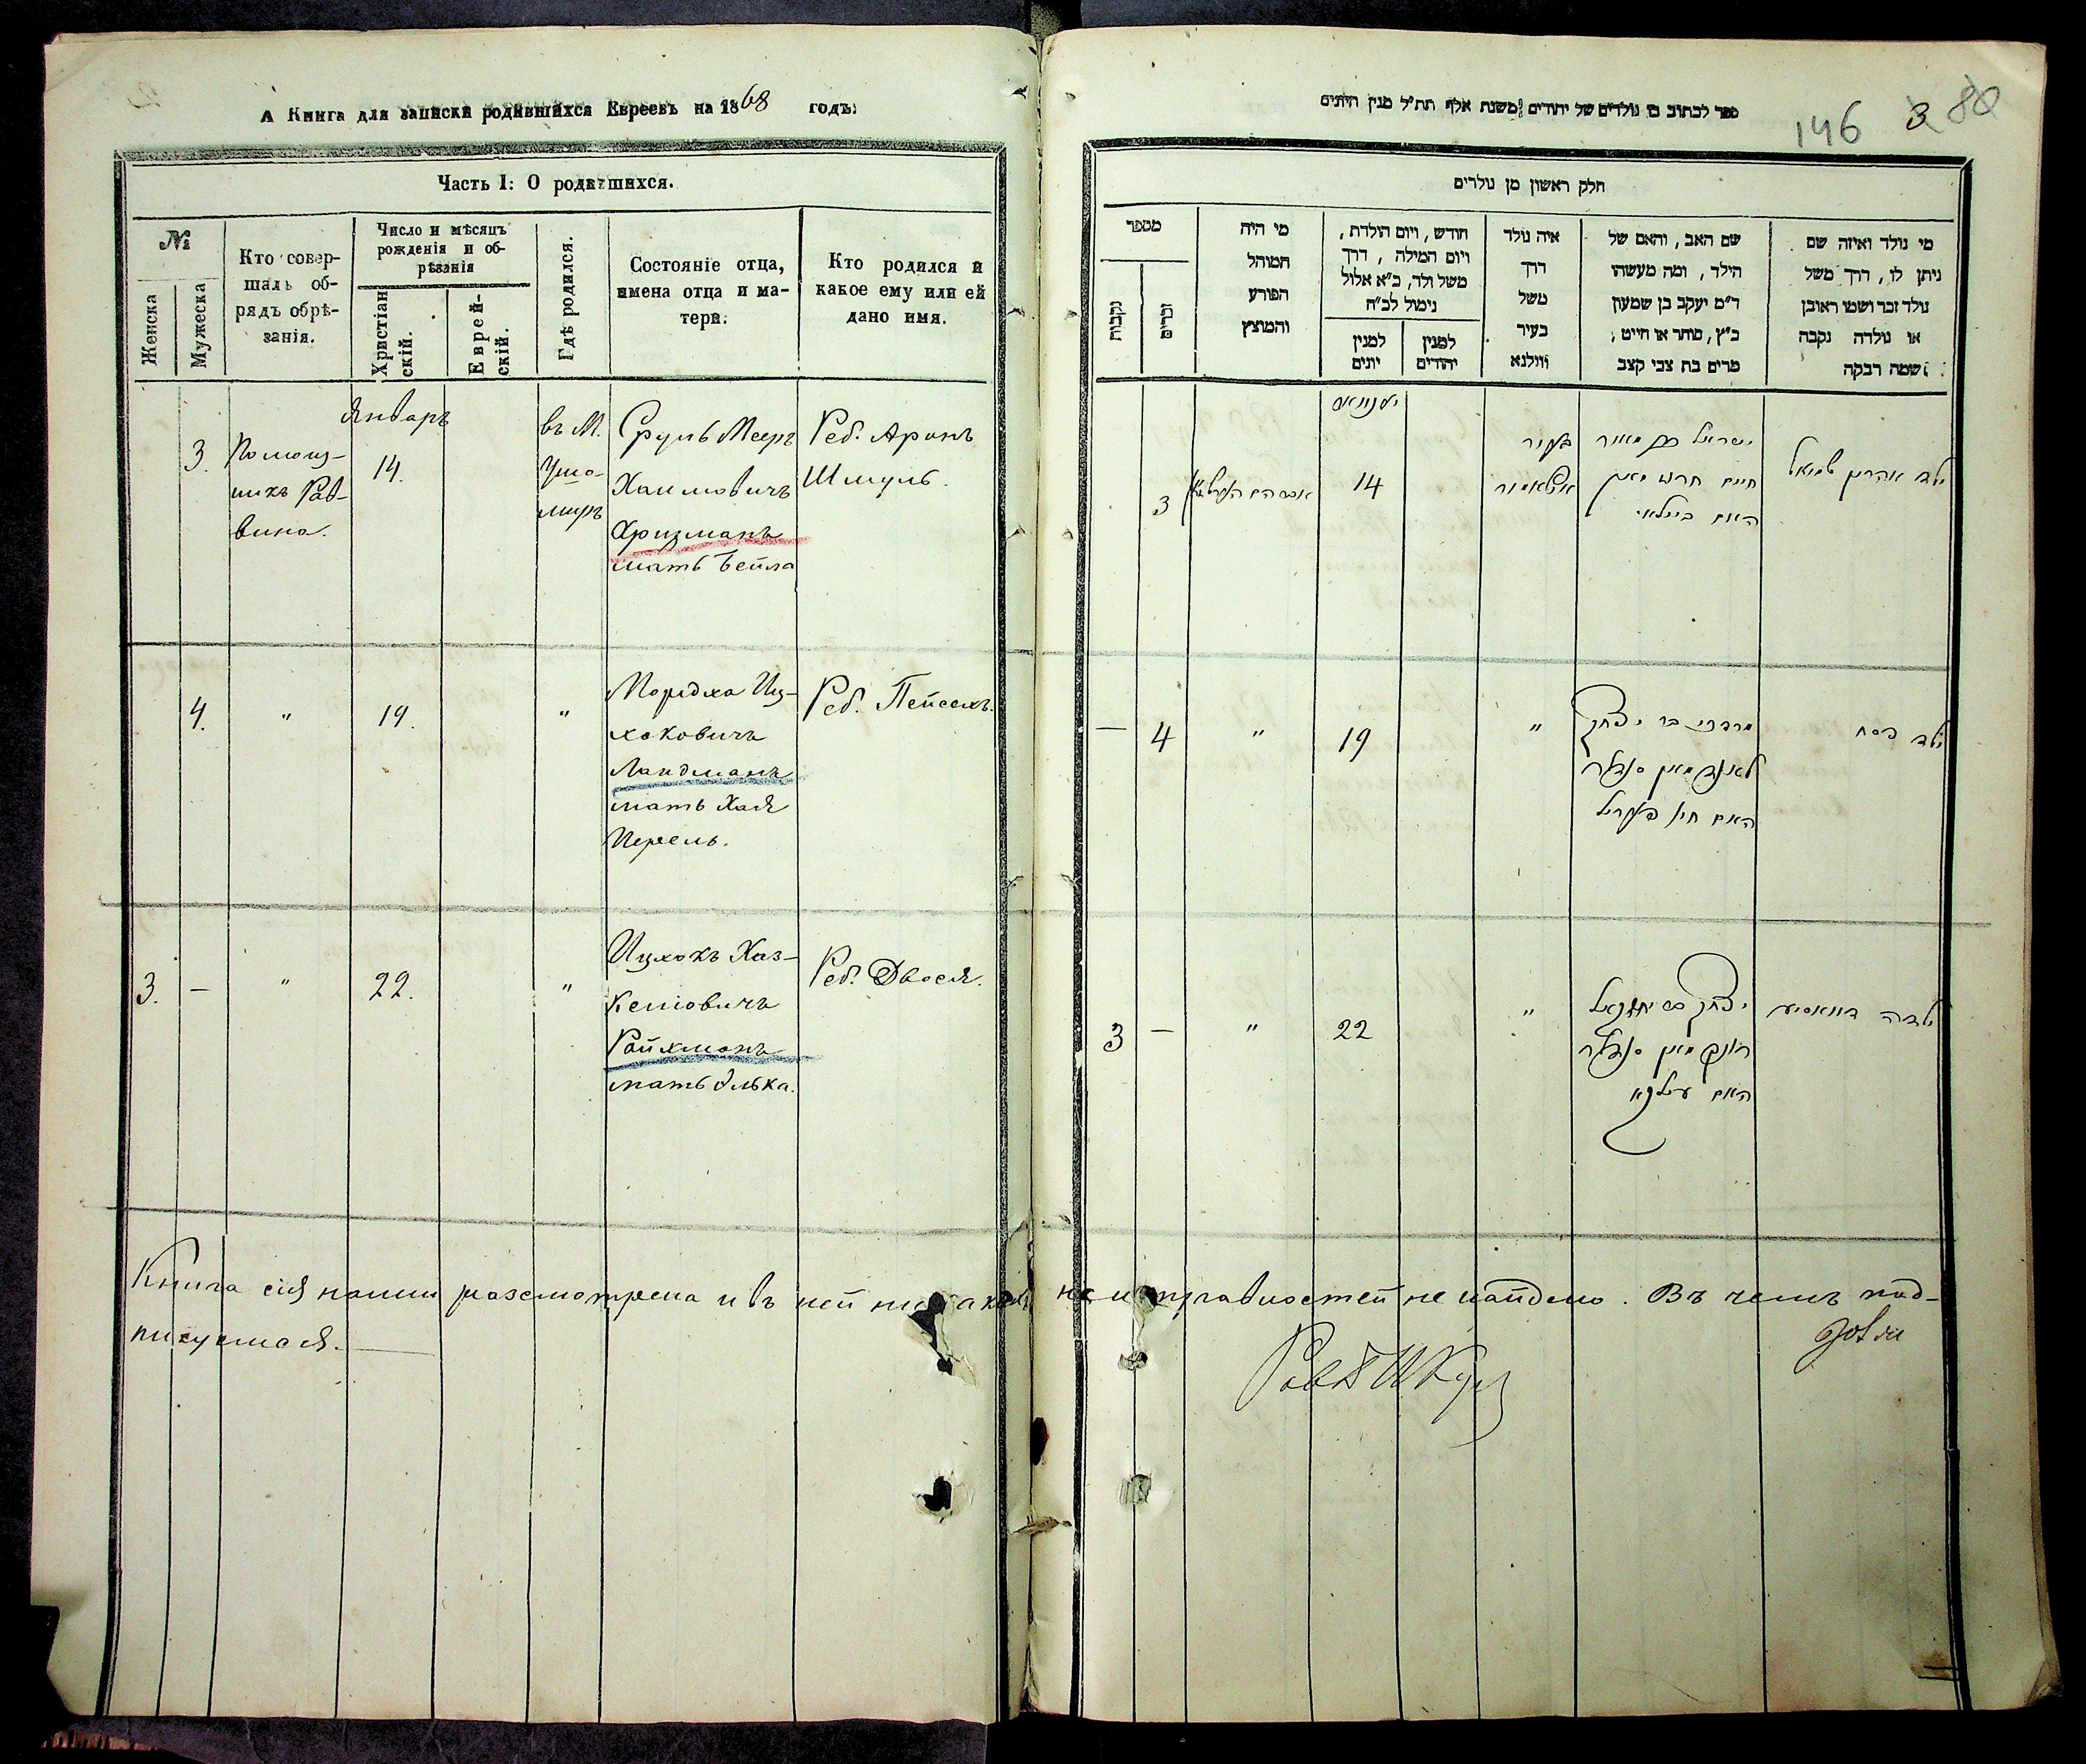 А Книга для записки родившихся Евреевъ на 1868 годъ.
Часть I: О родившихся.
№
Женска
Мужеска
Кто совер-
шалъ об-
рядъ обрѣ-
занія.
Число и мѣсяцъ
рожденія и об-
рѣзанія
Христіан
скій.
Еврей-
скій.
Гдѣ родился.
Состояніе отца,
имена отца и ма-
тери.
Кто родился и
какое ему или ей
дано имя.
3.
Помощ-
никъ Рав-
вина.
Январь
14.
въ М.
Ушо-
миръ
Сруль Мееръ
Хаимовичъ
Хризманъ
мать Бейла
Реб. Аронъ
Шмуль.
4.
"
19.
"
Мордха Иц-
хоковичъ
Ландманъ
мать Хая
Перель.
Реб. Пейсехъ.
3.
—
"
22.
"
Ицхокъ Хаз-
келіовичъ
Райхманъ
мать Элька.
Реб. Двося.
146 3 80
ספר לכתוב בו נולדים של יהודים משנת אלף תת״ל מנין היונים
חלק ראשון מן נולדים
מספר
נקבות
זכרים
מי היה
המוהל
הפורע
והמוצץ
חודש, ויום הולדת,
ויום המילה, דרך
משל ולד, כ״א אלול
נימול לב״ח
למנין
יונים
למנין
יהודים
איה נולד
דרך
משל
בעיר
ווילנא
שם האב, והאם של
הילד, ומה מעשהו
ד״מ יעקב בן שמעון
כ״ץ, סוחר או חייט,
מרים בת צבי קצב
מי נולד ואיזה שם
ניתן לו, דרך משל
נולד זכר ושמו ראובן
או נולדה נקבה
ושמה רבקה
3
יענוואר
14
ישראל מאיר
חיים
האם ביילא
ילד אהרון שמואל
—
4
"
19
"
מרדכי בר יצחק
לאנדמאן סנדלר
האם חי׳ פערל
ילד פסח
3
—
"
22
"
יצחק בר יחזקאל
רייכמאן סנדלר
האם עלקא
ילדה דוואסיע
Книга сія нами разсмотрена и въ ней никакихъ неисправностей не найдено. Въ чемъ под-
писуемся.